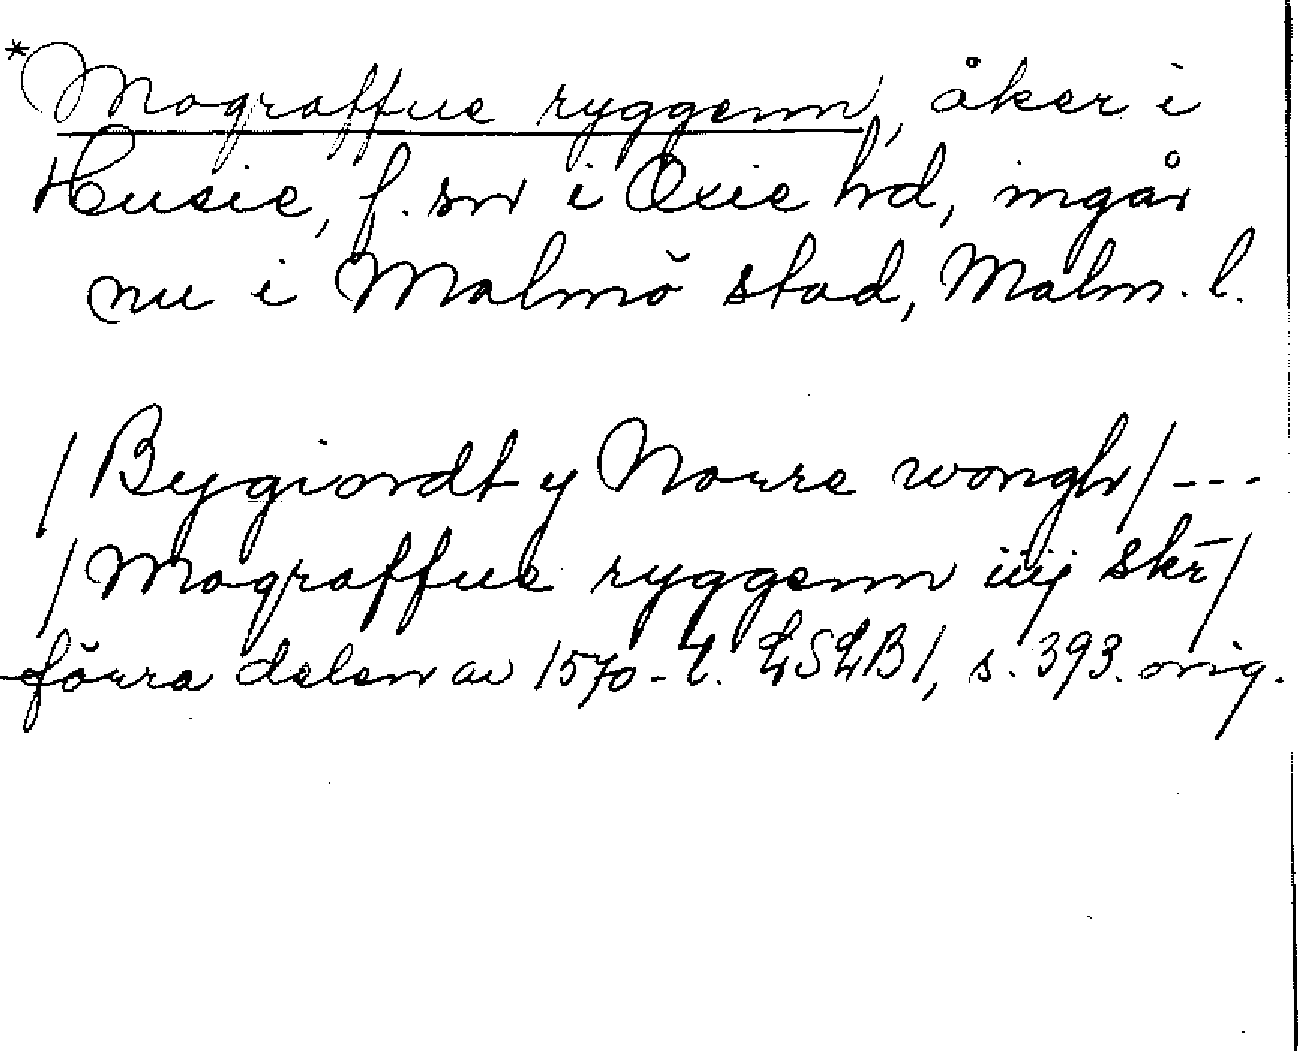 *Mograffue ryggenn, åker i
Husie, f. sn i Oxie hd, ingår
nu i Malmö stad, Malm. l.
/Bygiordt y Norre wongh/---
/Mograffue ryggenn iiij skr̄/
förra delen av 1570-t. LSLB1, s. 393. orig.